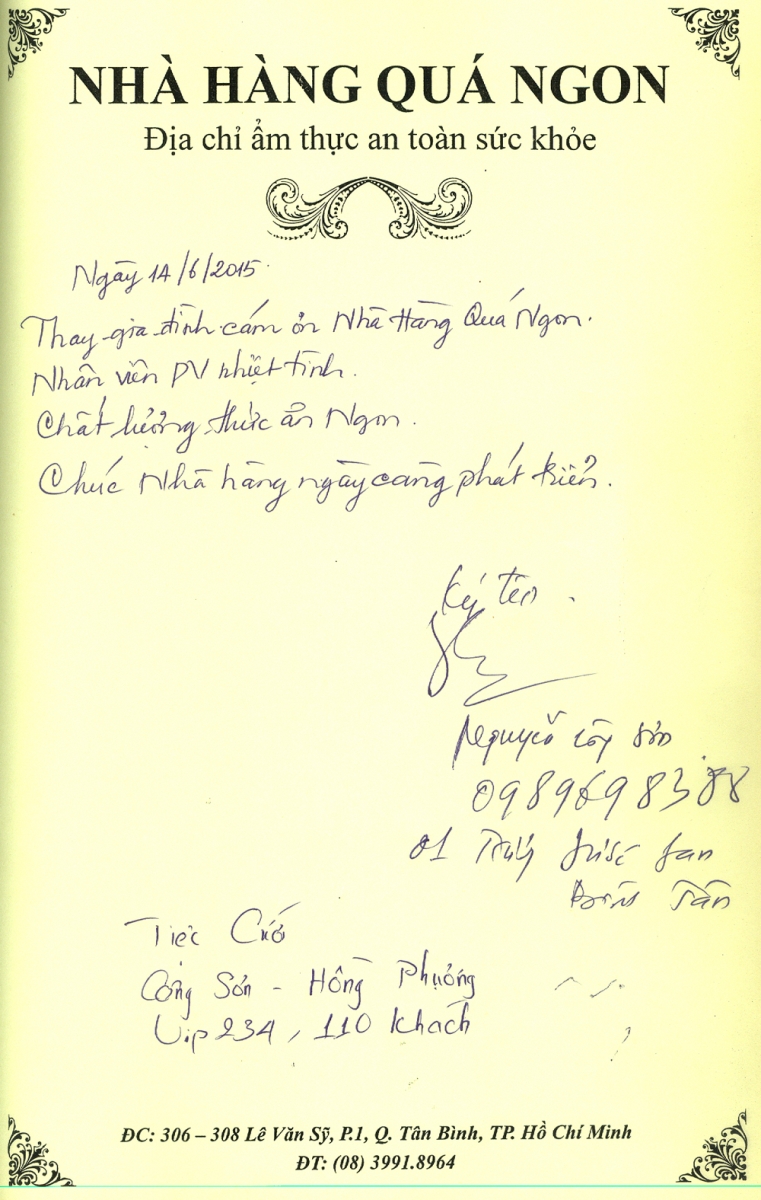 NHÀ HÀNG QUÁ NGON
Địa chỉ ẩm thực an toàn sức khỏe
Ngày 14/6/2015.
Thay gia đình cám ơn Nhà Hàng Quá Ngon.
Nhân viên PV nhiệt tình.
Chất lượng thức ăn Ngon.
Chúc Nhà hàng ngày càng phát triển.
Ký tên.
Nguyễn Sơn
0989698388
01
Tân
Tiệc Cưới
Công Sơn - Hồng Phượng
Vip 234, 110 khách
ĐC: 306 – 308 Lê Văn Sỹ, P.1, Q. Tân Bình, TP. Hồ Chí Minh
ĐT: (08) 3991.8964